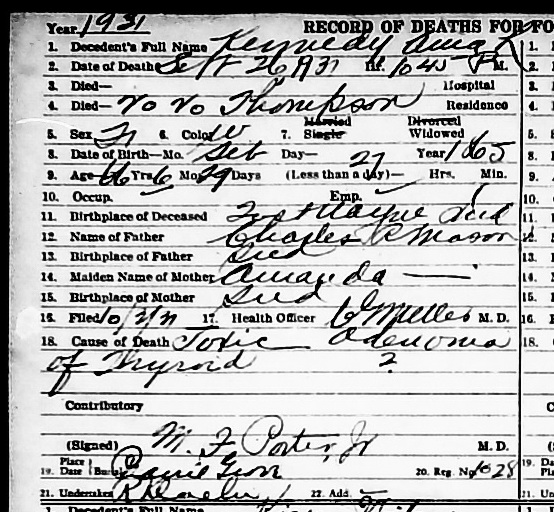 Year 1931 RECORD OF DEATHS FOR FO
1. Decedent's Full Name Kennedy
2. Date of Death Sept 26 1931 Hr. 10 45 P M.
3. Died— Hospital
4. Died— Thompson Residence
5. Sex 6. Color W 7. Married Single Divorced Widowed
8. Date of Birth—Mo. Feb Day— 27 Year 1865
9. Age 66 Yrs. 6 Mo. 29 Days (Less than a day)— Hrs. Min.
10. Occup. Emp.
11. Birthplace of Deceased Fort Wayne Ind
12. Name of Father Charles Mason
13. Birthplace of Father Ind
14. Maiden Name of Mother Amanda —
15. Birthplace of Mother Ind
16. Filed 17. Health Officer M. D.
18. Cause of Death Toxic Adenoma
of Thyroid ?
Contributory
(Signed) M. F. Porter, Jr M. D.
19. Place Date (Burial) 20. Reg. No.
21. Undertaker 22. Add.
1. Decedent's Full Name